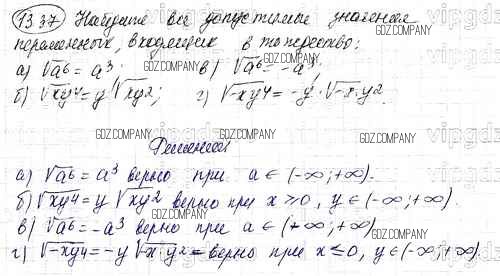 1337 Найдите все допустимые значения
переменных, входящих в тождество:
а) √a⁶ = a³. в) √a⁶ = -a³;
б) √xy⁴ = y √xy²; г) √-xy⁴ = -y · √-x · y²
GDZ.COMPANY
Решение
а) √a⁶ = a³ верно при a ∈ (-∞; +∞).
б) √xy⁴ = y √xy² верно при x > 0, y ∈ (-∞; +∞).
в) √a⁶ = -a³ верно при a ∈ (+∞; +∞)
г) √-xy⁴ = -y √-x · y² - верно при x ≤ 0, y ∈ (-∞; +∞).